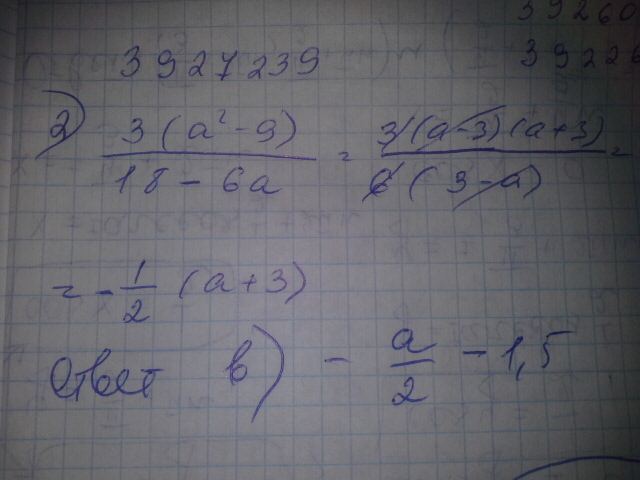 39260
3927239
39226
2) 3(a²-9) / 18-6a = 3(a-3)(a+3) / 6(3-a) =
= -1/2 (a+3)
Ответ в) - a/2 - 1,5